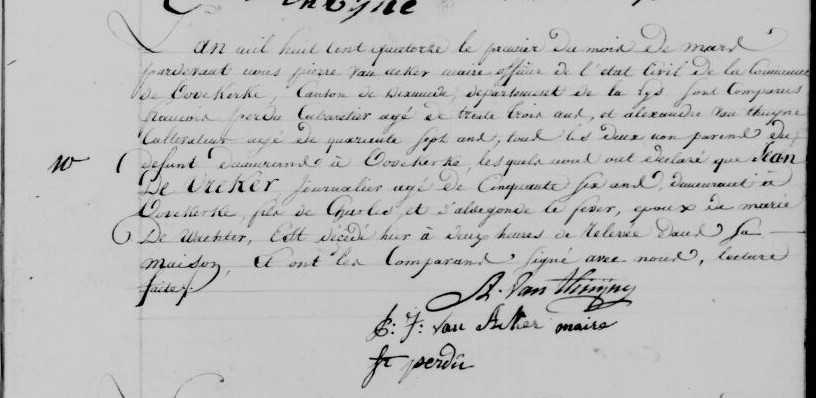 thuyne
L'an mil huit cent quatorze le premier du mois de mars
pardevant nous pierre van acker maire officier de l'etat Civil de la Commune
de Oostkerke, Canton de Dixmude, departement de la Lys sont Comparus
francois perdu Cabaretier agé de trente trois ans, et alexandre van thuyne
Cultivateur agé de quarante sept ans, tous les deux non parens du
defunt demeurans à Oostkerke, lesquels nous ont declaré que Jean
De Vreker Journalier agé de Cinquante six ans, demeurant à
Oostkerke, fils de Charles, et d'aldegonde le fever, epoux de marie
De Wachter, Est décédé hier à deux heures de relevée dans sa
maison, Et ont les Comparans signé avec nous, lecture
faite.
A. Van thuyne
P: J: van Acker maire
fr perdu